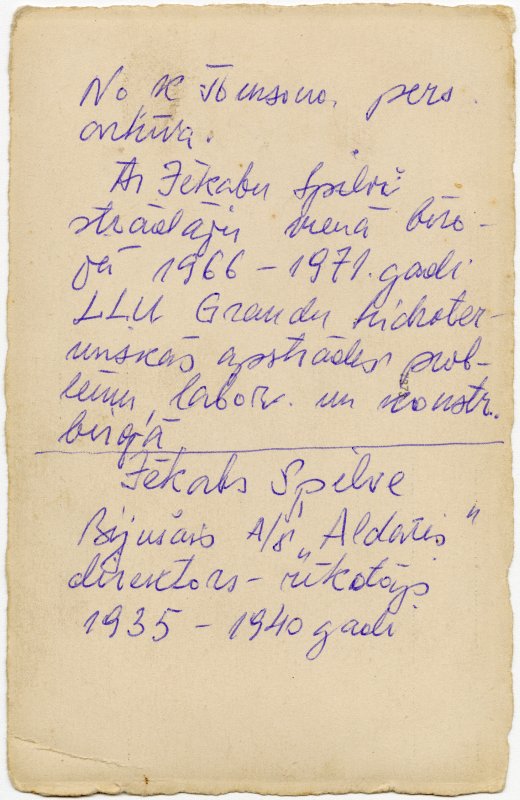 No K Jbensona, pers.
arhīva.
Ar Jēkabu Spilvi
strādāju vienā biro-
jā 1966 – 1971. gadi
LLU Graudu hidroter-
miskās apstrādes prob-
lēmu labor. un konstr.
birojā
Jēkabs Spilve
Bijušais A/S „Aldaris"
direktors – rīkotājs
1935 – 1940 gadi